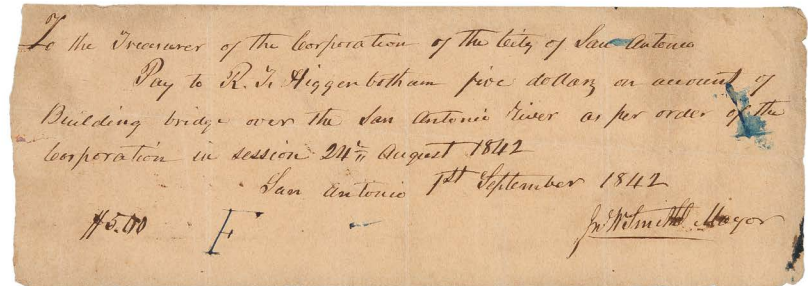 To the Treasurer of the Corporation of the City of San Antonio
Pay to R. T. Higgenbotham five dollars on account of
Building bridge over the San Antonio River as per order of the
Corporation in session 24th August 1842
San Antonio 1st September 1842
$5.00 F Jno W Smith Mayor